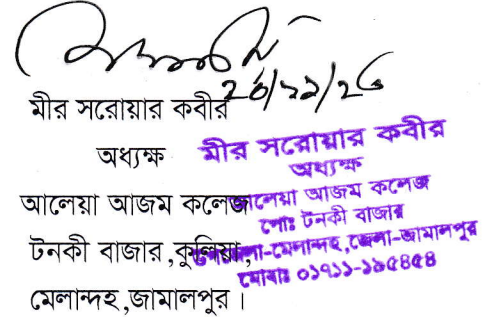 ২৩/১১/২৫
মীর সরোয়ার কবীর
অধ্যক্ষ
আলেয়া আজম কলেজ
টনকী বাজার ,কুলিয়া,
মেলান্দহ,জামালপুর।
মীর সরোয়ার কবীর
অধ্যক্ষ
আলেয়া আজম কলেজ
পোঃ টনকী বাজার
উপজেলা-মেলান্দহ,জেলা-জামালপুর
মোবাঃ ০১৭১১-১৯৫৪৫৪